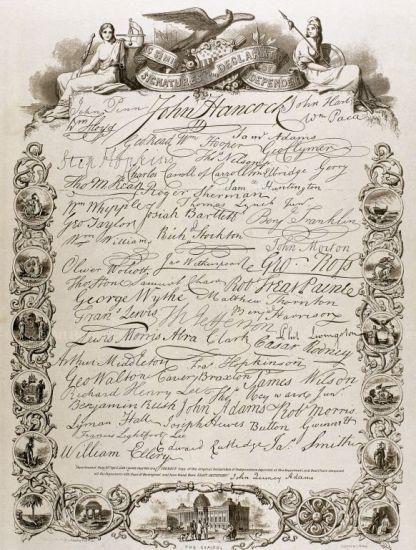 SIGNATURES DECLARATION OF INDEPENDENCE
John Penn John Hancock John Hart
Wm Hooper Saml Adams Wm Paca
Geo Read Geo Clymer
Step Hopkins Tho Nelson jr
Charles Carroll of Carrollton Elbridge Gerry
Tho M:Kean Roger Sherman Sam Huntington
Wm Whipple Thomas Lynch Junr
Geo Taylor Josiah Bartlett Benj Franklin
Wm Williams Richd Stockton John Morton
Oliver Wolcott Jno Witherspoon Geo Ross
Tho Stone Samuel Chase Robt Treat Paine
George Wythe Matthew Thornton
Frans Lewis Th Jefferson Benj Harrison
Lewis Morris Abra Clark Caesar Rodney
Phil Livingston
Arthur Middleton Fras Hopkinson
Geo Walton Carter Braxton James Wilson
Richard Henry Lee Thos Heyward Junr
Benjamin Rush John Adams Robt Morris
Lyman Hall Joseph Hewes Button Gwinnett
Francis Lightfoot Lee
William Ellery Edward Rutledge Jas Smith
John Quincy Adams
THE CAPITOL